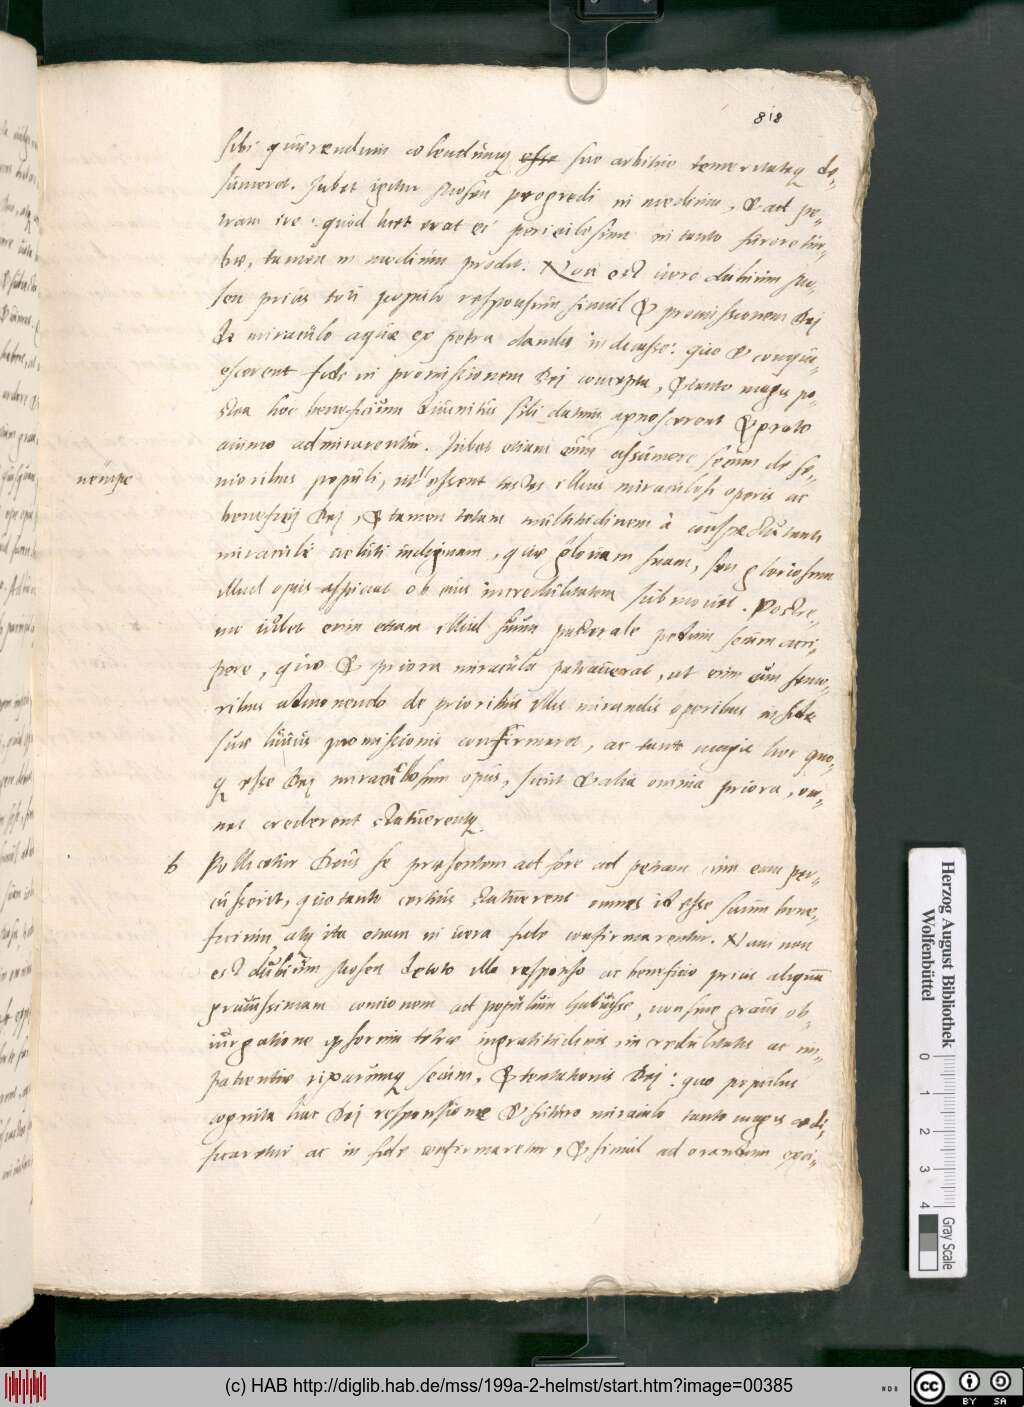 818
sibi quaerendum colendumque esse suo arbitrio temeritateque de-
sumeret. Jubet igitur Mosen progredi in medium, & ad pe-
tram ire: quod licet erat ei periculosum in tanto furore tur-
bae, tamen in medium prodit. Non est vero dubium Mo-
sen prius toti populo responsum simul & promissionem Dej
de miraculo aquae ex petra dandae indicasse: quo & conqui-
escerent fide in promissionem Dej concepta, & tanto magis po-
stea hoc beneficium divinitus sibi datum agnoscerent & grato
animo admirarentur. Jubet etiam eum assumere secum de se-
nioribus populi, ut essent testes illius miraculosi operis ac
nempe
beneficij Dej, & tamen totam multitudinem à conspectu tanti
miraculi arceri indignam, quae gloriam suam, seu gloriosum
illud opus aspiciat ob eius incredulitatem submovet. Postre-
mo iubet eum etiam illud suum pastorale pedum secum acci-
pere, quo & priora miracula patraverat, ut eum cum senio-
ribus admonendo de prioribus illis mirandis operibus in fide
suae huius promissionis confirmaret, ac tanto magis hoc quo-
que esse Dej miraculosum opus, sicut & alia omnia priora, om-
nes crederent statuerentque.
6 Pollicetur Deus se praesentem adfore ad petram cum eam per-
cusserit, quo tanto certius statuerent omnes id esse suum bene-
ficium atque ita etiam in vera fide confirmarentur. Nam non
est dubium Mosen de toto illo responso ac beneficio prius aliquam
gravissimam concionem ad populum habuisse, non sine gravi ob-
iurgatione ipsorum tetrae ingratitudinis, incredulitatis ac im-
patientiae rixarumque secum, & tentationis Dej: quo populus
cognita hac Dej responsione & futuro miraculo tanto magis aedi-
ficaretur ac in fide confirmaretur, & simul ad orandum exci-
Herzog August Bibliothek
Wolfenbüttel
0 1 2 3 4
Gray Scale
(c) HAB http://diglib.hab.de/mss/199a-2-helmst/start.htm?image=00385
NDB
CC BY SA